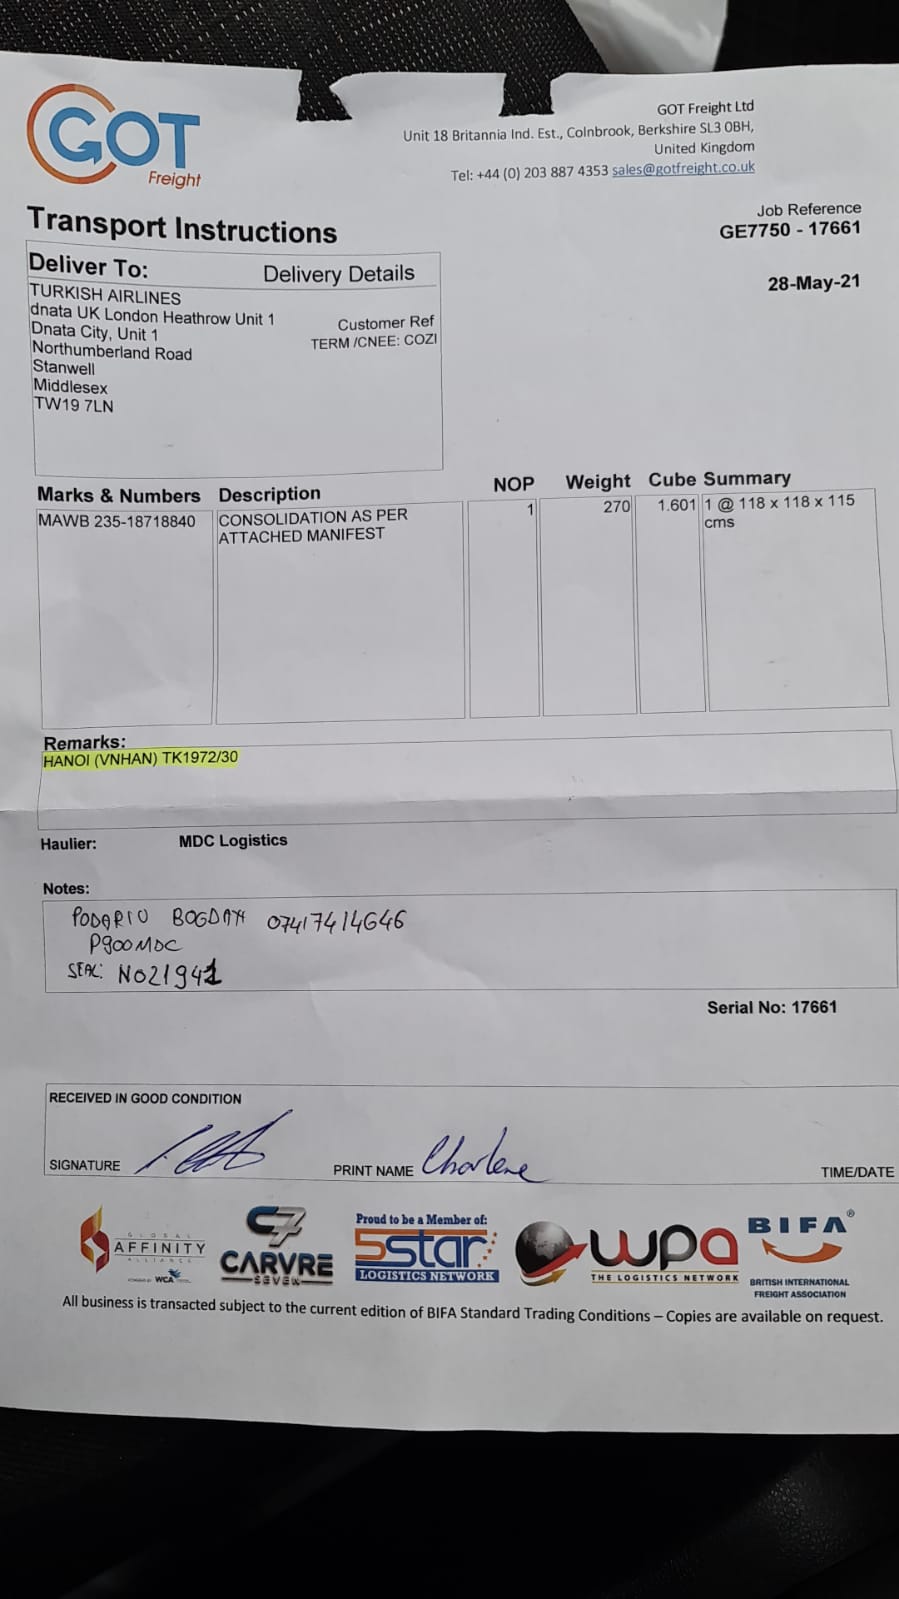 GOT
Freight
GOT Freight Ltd
Unit 18 Britannia Ind. Est., Colnbrook, Berkshire SL3 0BH,
United Kingdom
Tel: +44 (0) 203 887 4353 sales@gotfreight.co.uk
Transport Instructions
Job Reference
GE7750 - 17661
28-May-21
Deliver To: Delivery Details
TURKISH AIRLINES
dnata UK London Heathrow Unit 1
Dnata City, Unit 1
Northumberland Road
Stanwell
Middlesex
TW19 7LN
Customer Ref
TERM /CNEE: COZI
Marks & Numbers Description NOP Weight Cube Summary
MAWB 235-18718840 CONSOLIDATION AS PER 1 270 1.601 1 @ 118 x 118 x 115
ATTACHED MANIFEST cms
Remarks:
HANOI (VNHAN) TK1972/30
Haulier: MDC Logistics
Notes:
BOGDAN 07417414646
P900MDC
SEAL: NO21941
Serial No: 17661
RECEIVED IN GOOD CONDITION
SIGNATURE PRINT NAME Charlene TIME/DATE
GLOBAL
AFFINITY
ALLIANCE
POWERED BY WCA
C7
CARVRE
SEVEN
Proud to be a Member of:
5star
LOGISTICS NETWORK
wpa
THE LOGISTICS NETWORK
BIFA®
BRITISH INTERNATIONAL
FREIGHT ASSOCIATION
All business is transacted subject to the current edition of BIFA Standard Trading Conditions – Copies are available on request.